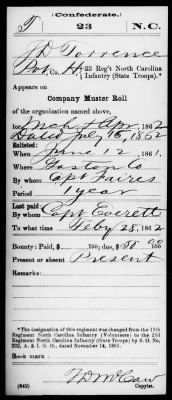 (Confederate.)
T 23 N.C.
J D Torrence
Pvt, Co. H, 23 Reg't North Carolina
Infantry (State Troops).*
Appears on
Company Muster Roll
of the organization named above,
for Mch & Apr, 1862
Dated July 15, 1862
Enlisted:
When June 12, 1861.
Where Gaston Co
By whom Capt Faires
Period 1 year
Last paid:
By whom Capt Everett
To what time Feby 28, 1862
Bounty: Paid, $ 100; due, $ 50 00 100
Present or absent Present
Remarks:
*The designation of this regiment was changed from the 13th
Regiment North Carolina Infantry (Volunteers) to the 23d
Regiment North Carolina Infantry (State Troops) by S. O. No.
222, A. & I. G. O., dated November 14, 1861.
Book mark:
(642) Copyist.